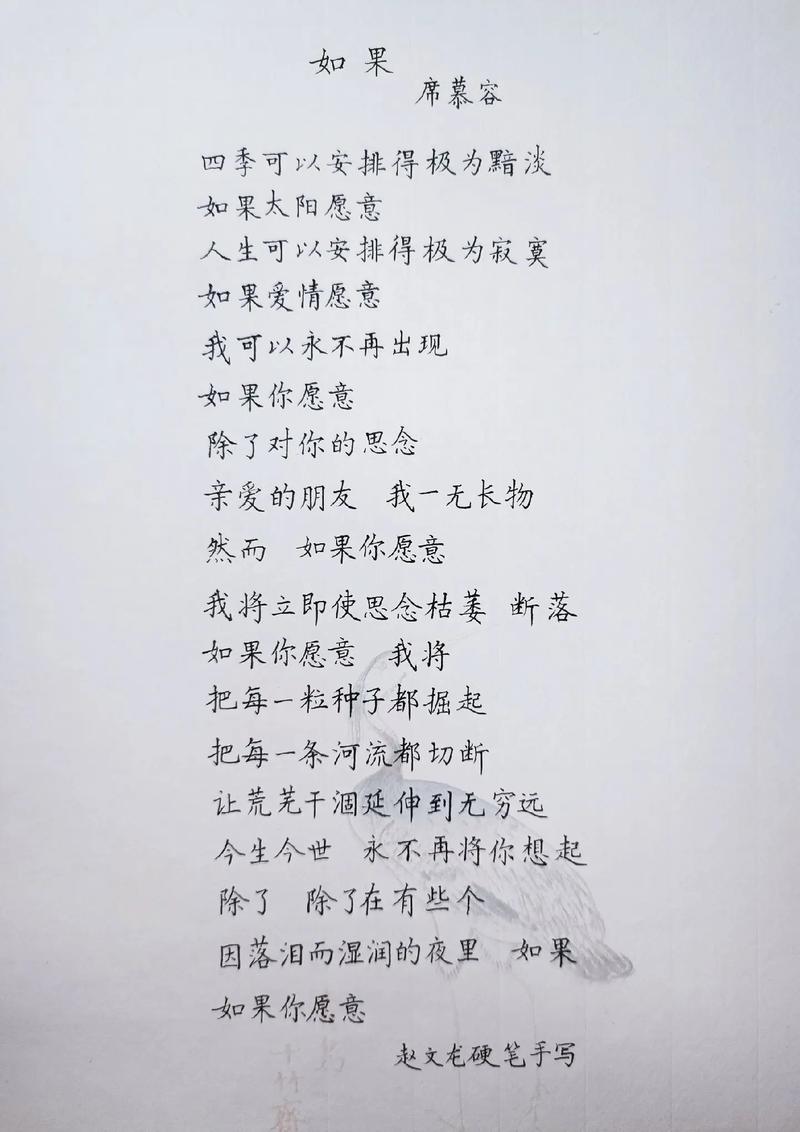 如果
席慕容
四季可以安排得极为黯淡
如果太阳愿意
人生可以安排得极为寂寞
如果爱情愿意
我可以永不再出现
如果你愿意
除了对你的思念
亲爱的朋友 我一无长物
然而 如果你愿意
我将立即使思念枯萎 断落
如果你愿意 我将
把每一粒种子都掘起
把每一条河流都切断
让荒芜干涸延伸到无穷远
今生今世 永不再将你想起
除了 除了在有些个
因落泪而湿润的夜里 如果
如果你愿意
赵文龙硬笔手写
十竹斋